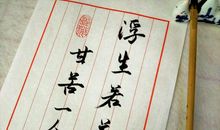 浮生若
甘苦一